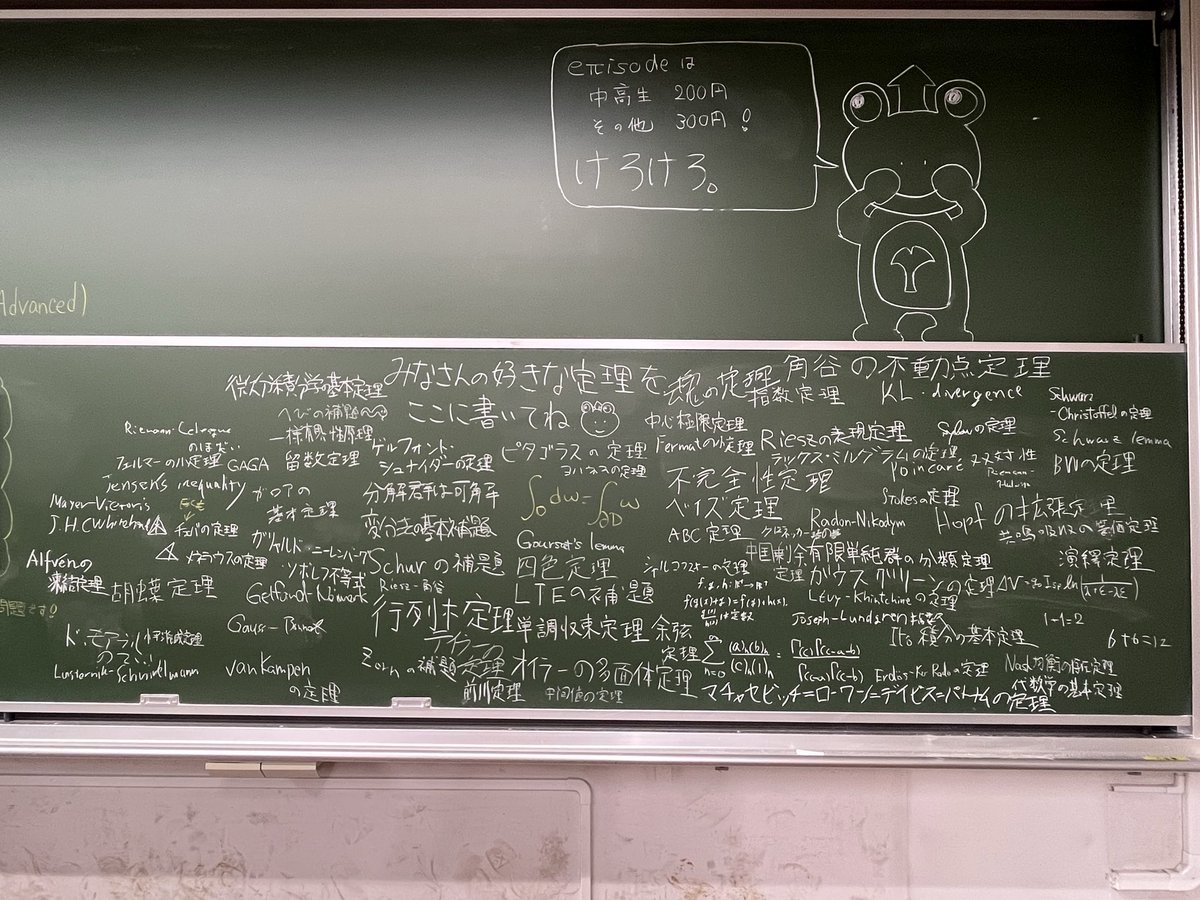 eπisodeは
中高生 200円
その他 300円!
けろけろ。
Advanced)
みなさんの好きな定理を
ここに書いてね
微分積分学の基本定理
魂の定理
角谷の不動点定理
指数定理
KL-divergence
Schwarz
-Christoffelの定理
へびの補題
中心極限定理
一様有界性原理
ゲルフォント・
シュナイダーの定理
ピタゴラスの定理
Fermatの小定理
Rieszの表現定理
Sylowの定理
Schwarz lemma
フェルマーの小定理
GAGA
留数定理
ラックス・ミルグラムの定理
Poincaré 双対性
BWの定理
Jensen's inequality
ガロアの
基本定理
不完全性定理
Mayer-Vietoris
∫_D dω = ∫_∂D ω
ベイズ定理
Stokesの定理
J.H.C Whitehead
チェバの定理
変分法の基本補題
Radon-Nikodym
Hopfの拡張定理
メネラウスの定理
Goursat's lemma
ABC定理
ガリャルド・ニーレンバーグ
・ソボレフ不等式
Schurの補題
四色定理
中国剰余
定理
有限単純群の分類定理
演繹定理
Alfvénの
凍結定理
胡蝶定理
Gelfand-Naimark
Riesz-角谷
LTEの補題
シルコフスキーの定理
ガウスグリーンの定理
Lévy-Khintchineの定理
行列木定理
単調収束定理
余弦
定理
Joseph-Lundgren指数
1-1=2
Gauss-Bonnet
伊藤積分の基本定理
6+6=12
ド・モアブル
の定理
Lusternik-Schnirelmann
van Kampen
の定理
Zornの補題
オイラーの多面体定理
Erdős-Ko-Radoの定理
Nash均衡の存在定理
代数学の基本定理
前川定理
中間値の定理
マチャセビッチ=ロビンソン=デイビス=パトナムの定理